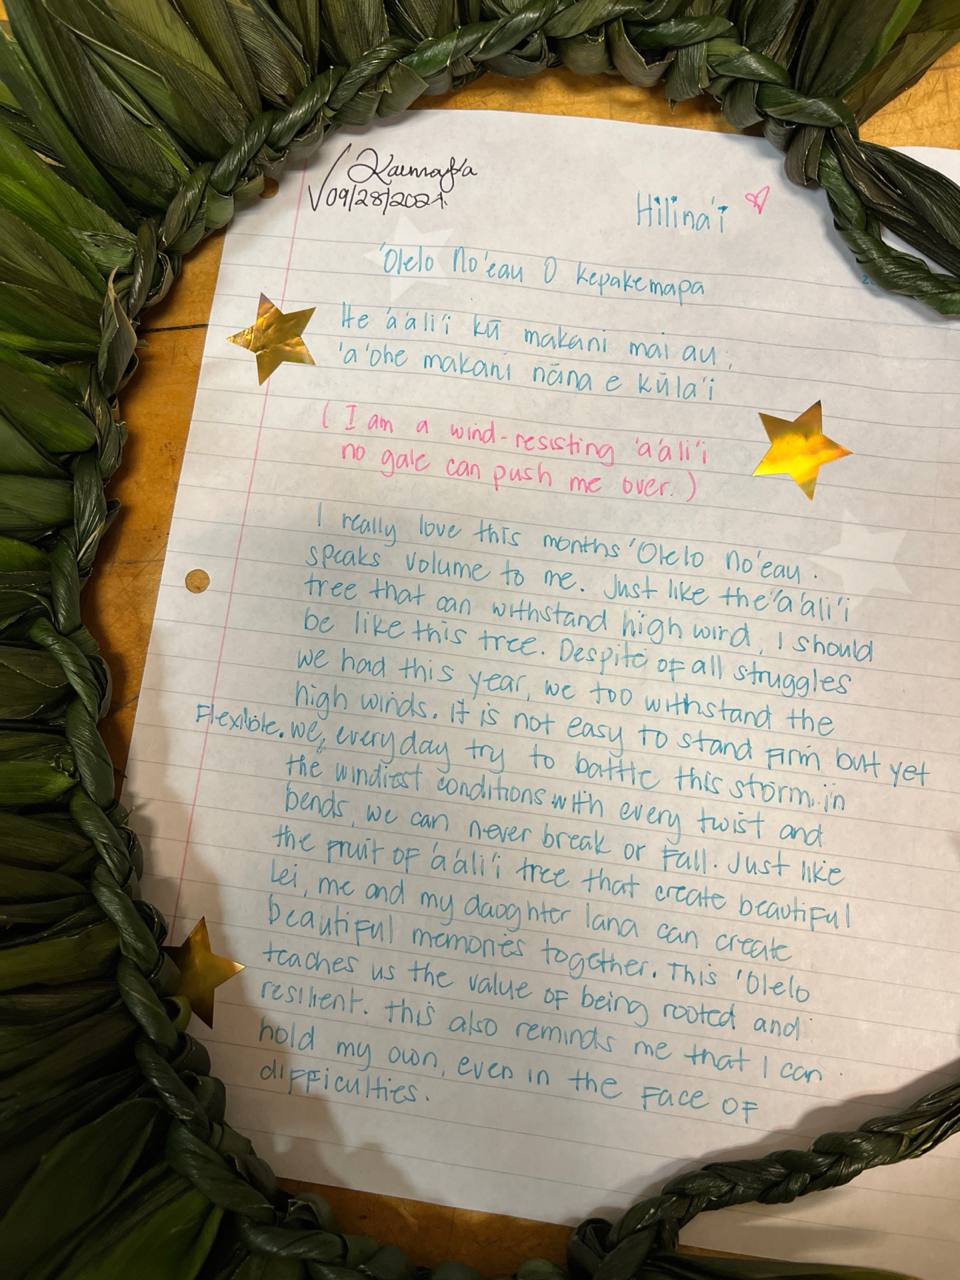 √09/28/2021
Hilina'i
'Olelo No'eau O Kepakemapa
He 'a'ali'i kū makani mai au;
'a'ohe makani nāna e kūla'i
( I am a wind-resisting 'a'ali'i
no gale can push me over. )
I really love this months 'Olelo No'eau.
speaks volume to me. Just like the 'a'ali'i
tree that can withstand high wind, I should
be like this tree. Despite of all struggles
we had this year, we too withstand the
high winds. It is not easy to stand firm but yet
Flexible. We, everyday try to battle this storm, in
the windiest conditions with every twist and
bends, we can never break or fall. Just like
the fruit of 'a'ali'i tree that create beautiful
Lei, me and my daughter lana can create
beautiful memories together. This 'Olelo
teaches us the value of being rooted and
resilient. This also reminds me that I can
hold my own, even in the face of
difficulties.